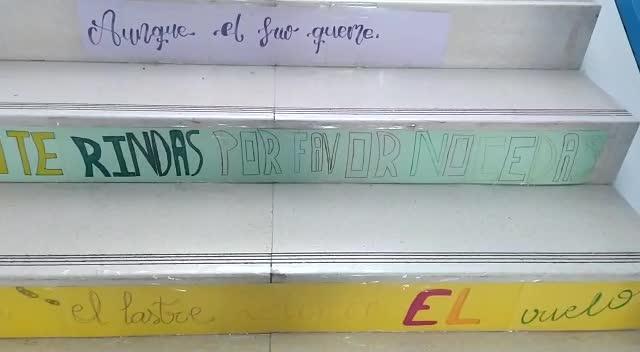 Aunque el frío queme.
TE RINDAS POR FAVOR NO CEDAS
el lastre EL vuelo